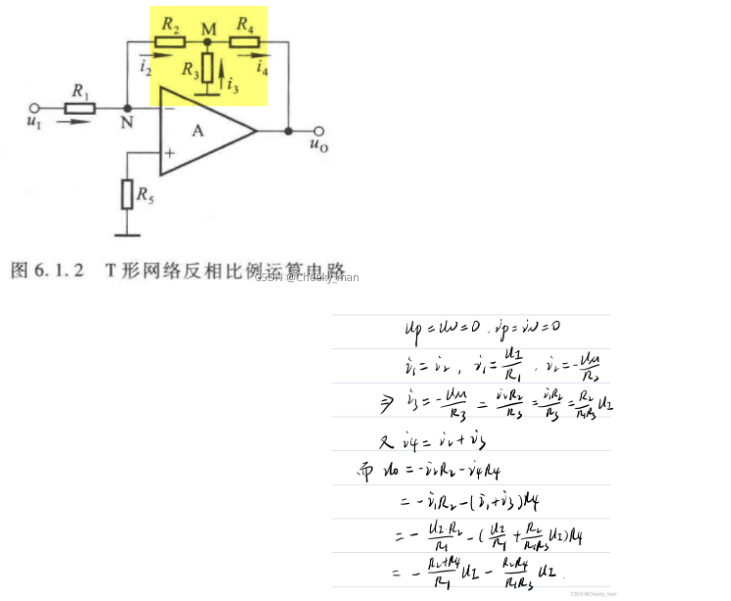 R₂ M R₄
i₂ R₃ i₃ i₄
R₁
u_I N − A u_O
+
R₅
图 6.1.2 T 形网络反相比例运算电路
CSDN @Cheeky_man
u_P = u_N = 0 . i_P = i_N = 0
i₁ = i₂ , i₁ = u_I/R₁ . i₂ = -u_M/R₂
⇒ i₃ = -u_M/R₃ = i₂R₂/R₃ = i₁R₂/R₃ = R₂/(R₁R₃) u_I
又 i₄ = i₂ + i₃
而 u_o = -i₂R₂ - i₄R₄
= -i₁R₂ - (i₁ + i₃)R₄
= - u_I·R₂/R₁ - (u_I/R₁ + R₂/(R₁R₃) u_I)R₄
= - (R₂+R₄)/R₁ u_I - R₂R₄/(R₁R₃) u_I .
CSDN @Cheeky_man